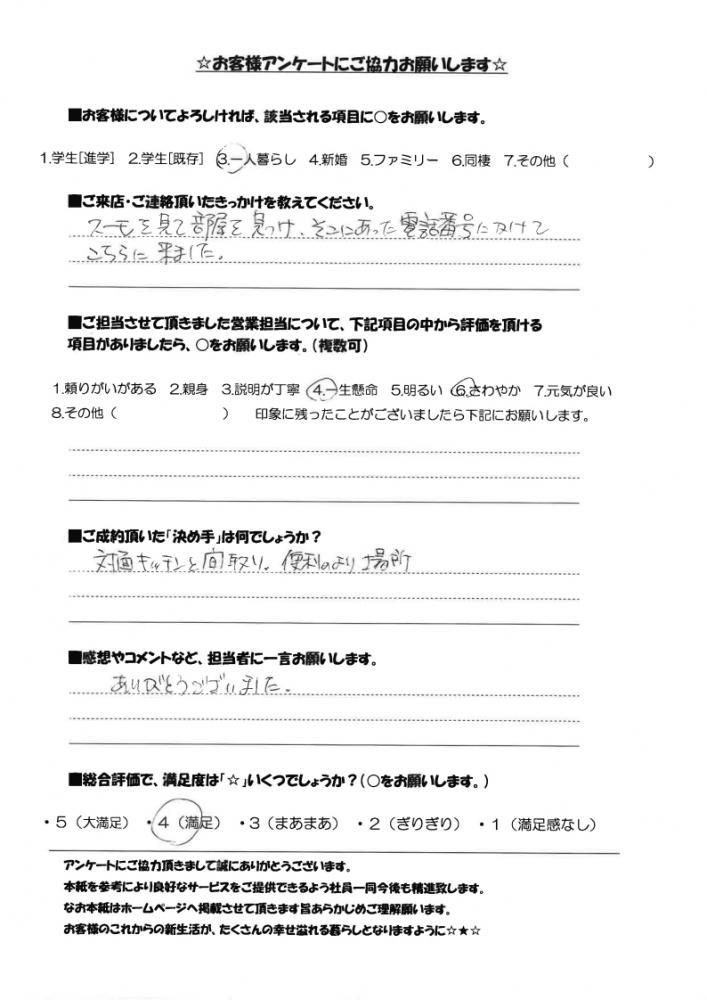 ☆お客様アンケートにご協力お願いします☆
■お客様についてよろしければ、該当される項目に○をお願いします。
1.学生[進学] 2.学生[既存] 3.一人暮らし 4.新婚 5.ファミリー 6.同棲 7.その他（ ）
■ご来店・ご連絡頂いたきっかけを教えてください。
スーモを見て部屋を見つけ、そこにあった電話番号にかけて
こちらに来ました。
■ご担当させて頂きました営業担当について、下記項目の中から評価を頂ける
項目がありましたら、○をお願いします。（複数可）
1.頼りがいがある 2.親身 3.説明が丁寧 4.一生懸命 5.明るい 6.さわやか 7.元気が良い
8.その他（ ） 印象に残ったことがございましたら下記にお願いします。
■ご成約頂いた「決め手」は何でしょうか？
対面キッチンと間取り。便利のより場所
■感想やコメントなど、担当者に一言お願いします。
ありがとうございました。
■総合評価で、満足度は「☆」いくつでしょうか？（○をお願いします。）
・5（大満足） ・4（満足） ・3（まあまあ） ・2（ぎりぎり） ・1（満足感なし）
アンケートにご協力頂きまして誠にありがとうございます。
本紙を参考により良好なサービスをご提供できるよう社員一同今後も精進致します。
なお本紙はホームページへ掲載させて頂きます旨あらかじめご理解願います。
お客様のこれからの新生活が、たくさんの幸せ溢れる暮らしとなりますように☆★☆